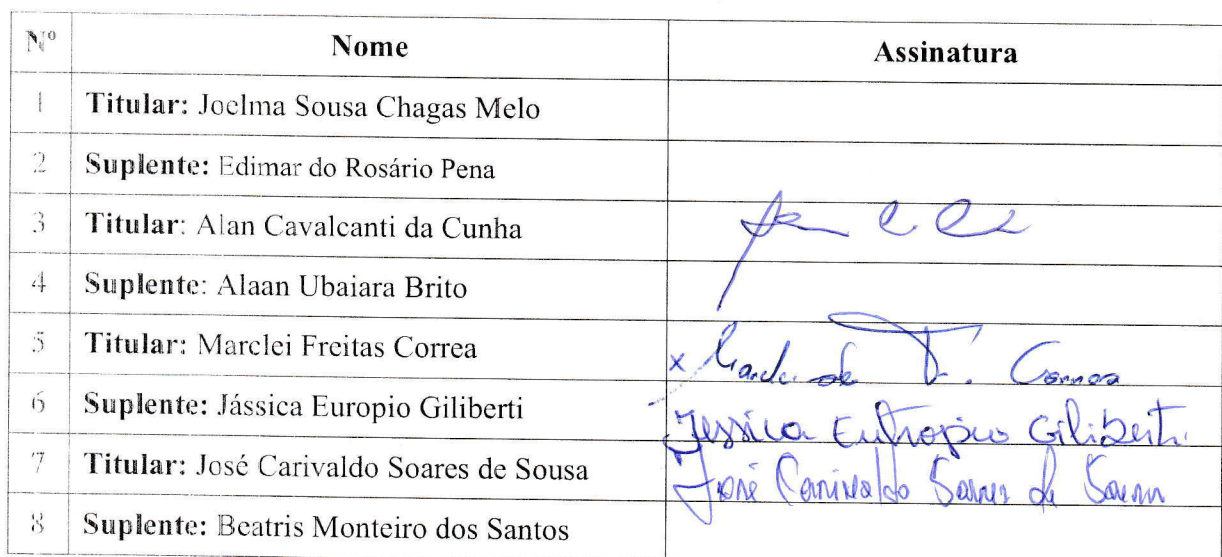 Nº Nome Assinatura
1 Titular: Joelma Sousa Chagas Melo
2 Suplente: Edimar do Rosário Pena
3 Titular: Alan Cavalcanti da Cunha
4 Suplente: Alaan Ubaiara Brito
5 Titular: Marclei Freitas Correa x F. Correa
6 Suplente: Jássica Europio Giliberti Jessica Eutropio Giliberti
7 Titular: José Carivaldo Soares de Sousa José Carivaldo Soares de Sousa
8 Suplente: Beatris Monteiro dos Santos